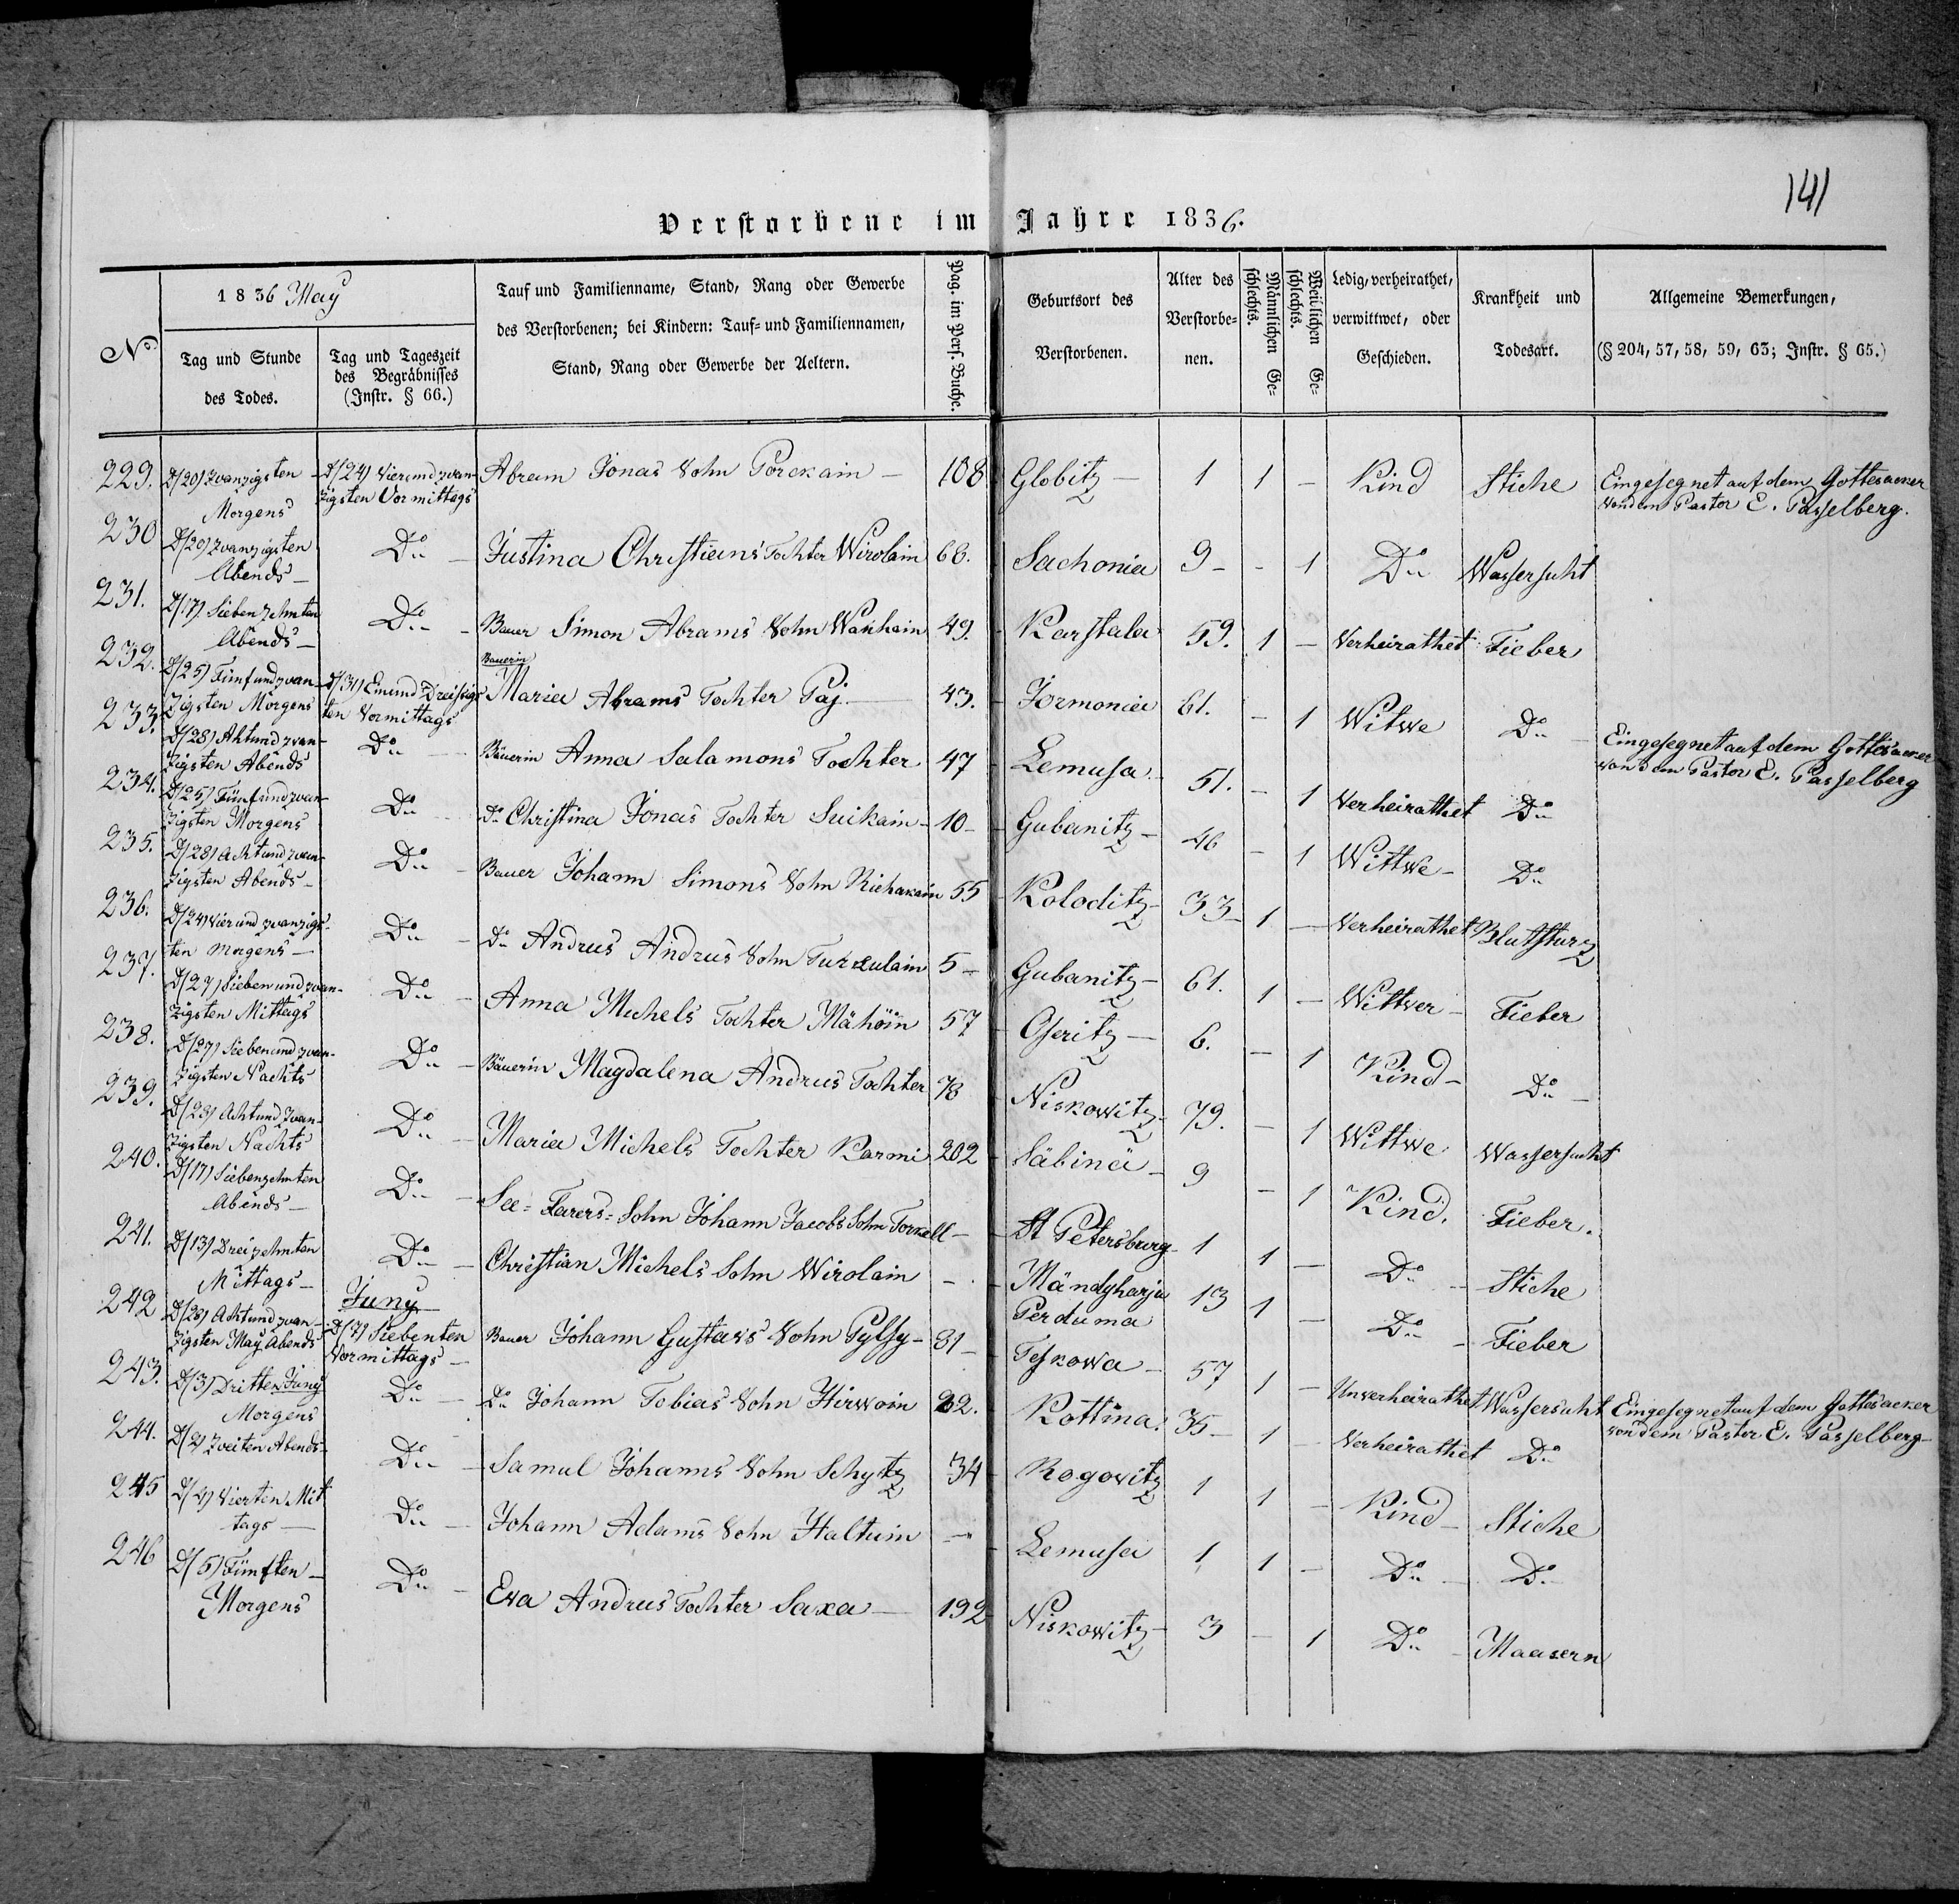 141
Verstorbene im Jahre 1836.
No
1836 May
Tag und Stunde des Todes.
Tag und Tageszeit des Begräbnisses (Instr. § 66.)
Tauf und Familienname, Stand, Rang oder Gewerbe
des Verstorbenen; bei Kindern: Tauf- und Familiennamen,
Stand, Rang oder Gewerbe der Aeltern.
Pag. im Pers. Buche.
Geburtsort des Verstorbenen.
Alter des Verstorbenen.
Männlichen Geschlechts.
Weiblichen Geschlechts.
Ledig, verheirathet, verwittwet, oder Geschieden.
Krankheit und Todesart.
Allgemeine Bemerkungen,
(§ 204, 57, 58, 59, 63; Instr. § 65.)
229. D(20) Zwanzigsten Morgens D(24) Vierundzwanzigsten Vormittags Abram Jonas Sohn Porckain — 108 Globitz — 1 1 — Kind Stiche Eingesegnet auf dem Gottesacker von dem Pastor E. Passelberg.
230 D(20) Zwanzigsten Abends — Do — Justina Christians Tochter Wirolain 68. Sachonia 9 — - 1 Do Wassersucht
231. D(17) Siebenzehnten Abends — Do — Bauer Simon Abrams Sohn Wanhain 49. Karstala 59. 1 — Verheirathet Fieber
232. D(25) Fünfundzwanzigsten Morgens D(31) Einund Dreisigsten Vormittags Bauerin Maria Abrams Tochter Paj — 43. Jormonia 61. - 1 Witwe Do
233. D(28) Achtundzwanzigsten Abends Do — Bäuerin Anna Salamons Tochter 47 Lemusa 51. - 1 Verheirathet Do Eingesegnet auf dem Gottesacker von dem Pastor E. Passelberg
234. D(25) Fünfundzwanzigsten Morgens Do — Do Christina Jonas Tochter Suikain — 10 — Gubanitz — 46 — 1 Wittwe — Do
235. D(28) Achtundzwanzigsten Abends — Do — Bauer Johann Simons Sohn Richakain 55 Koloditz — 33 — 1 — Verheirathet Blutsturz
236. D(24) Vierundzwanzigsten Morgens — Do — Do Andrus Andrus Sohn Turkulain 5 — Gubanitz — 61. 1 — Wittwer — Fieber
237. D(27) Siebenundzwanzigsten Mittags Do — Anna Michels Tochter Mähöin 57 Oseritz — 6. — 1 Kind — Do —
238. D(27) Siebenundzwanzigsten Nachts Do — Bäuerin Magdalena Andrus Tochter 78 Niskowitz — 79. — 1 Wittwe Wassersucht
239. D(28) Achtundzwanzigsten Nachts Do — Maria Michels Tochter Karmi 202 Säbinä — 9 — 1 Kind. Fieber.
240. D(17) Siebenzehnten Abends — Do — See-Farers-Sohn Johann Jacobs Sohn Torkell — St Petersburg — 1 1 — Do — Stiche
241. D(13) Dreizehnten Mittags — Do — Christian Michels Sohn Wirolain — Mändyharju Perduma 13 1 — Do — Fieber
242 D(28) Achtundzwanzigsten May Abends Juny D(7) Siebenten Vormittags — Bauer Johann Gustavs Sohn Pylsy — 81 — Teskowa — 57 1 — Unverheirathet Wassersucht Eingesegnet auf dem Gottesacker von dem Pastor E. Passelberg —
243. D(3) Dritten Juny Morgens Do — Do Johann Tobias Sohn Hirwoin 22. Kottina 35 — 1 — Verheirathet Do
244. D(2) Zweiten Abends — Do — Samul Johanns Sohn Schytz 34 Rogowitz 1 1 — Kind — Stiche
245 D(4) Vierten Mittags — Do — Johann Adams Sohn Haltuin — Lemusa 1 1 — Do — Do —
246 D(5) Fünften — Morgens Do — Ewa Andrus Tochter Saxa — 192 Niskowitz — 3 — 1 Do — Maasern